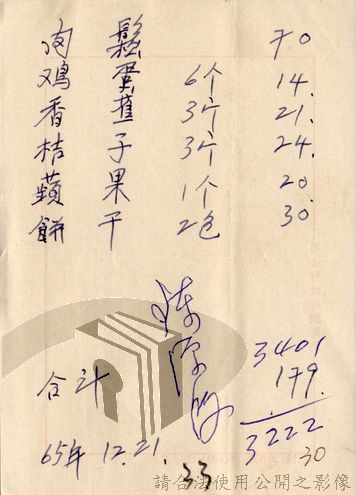 肉鬆 70
鸡蛋 6个 14.
香蕉 3个 21.
桔子 3个 24.
蘋果 1个 20.
餅干 2包 30
3401
179.
合计 3222
65年12.21. 30
33
請合法使用公開之影像